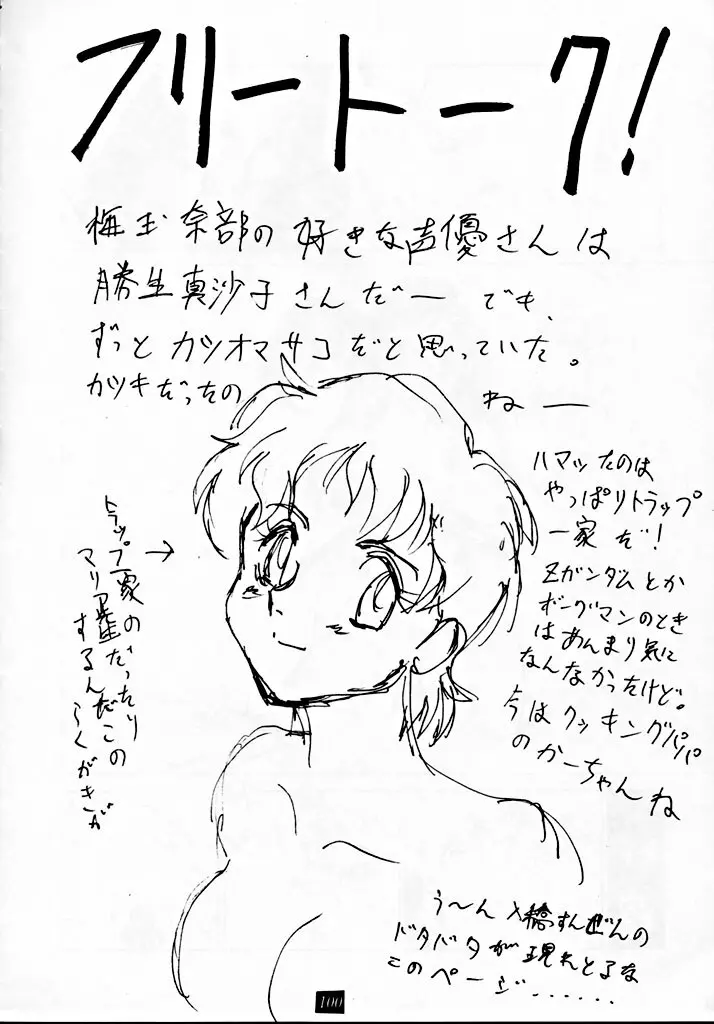 フリートーク!
梅玉奈部の好きな声優さんは
勝生真沙子さんだー でも、
ずっと カツオマサコだと思っていた。
カツキだったの ねー
ハマッたのは
やっぱりトラップ
一家だ!
Zガンダムとか
ボーグマンのとき
はあんまり気に
なんなかったけど。
今はクッキングパパ
のかーちゃんね
→
トラップ一家の
マリア先生だったり
するんだこの
らくがきが
う〜ん〆橋すんぜんの
ドタバタが現れとるな
このページ......
100